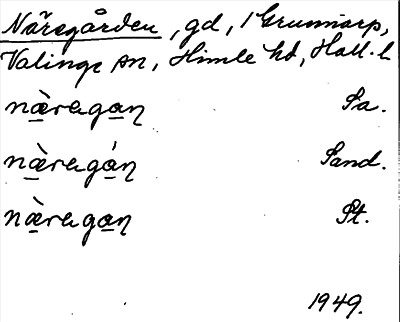 Näregården, gd, i Grunnarp,
Valinge sn, Himle hd, Hall. l.
næ̀rega̲ɳ Sa.
næ̀regá̲ɳ Sand.
næ̀rega̲ɳ St.
1949.